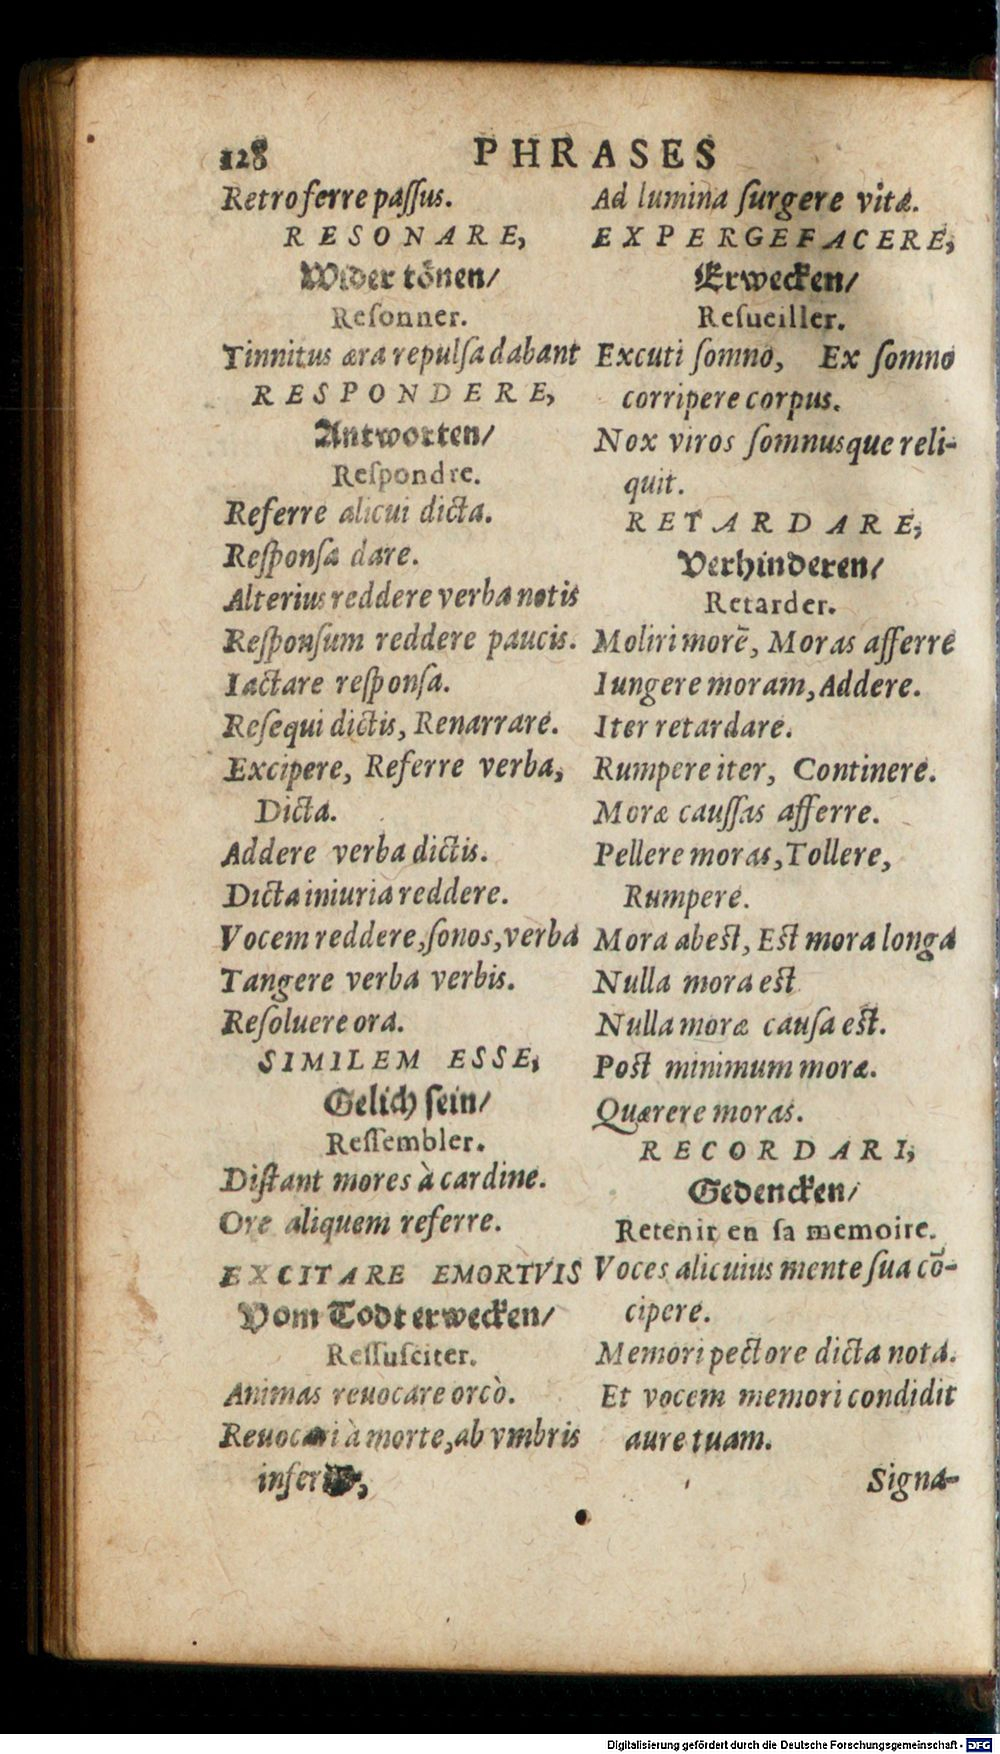 128
PHRASES
Retro ferre paſſus.
RESONARE,
Wider tönen/
Reſonner.
Tinnitus æra repulſa dabant
RESPONDERE,
Antworten/
Reſpondre.
Referre alicui dicta.
Reſponſa dare.
Alterius reddere verba notis
Reſponſum reddere paucis.
Iactare reſponſa.
Reſequi dictis, Renarrare.
Excipere, Referre verba,
Dicta.
Addere verba dictis.
Dicta iniuria reddere.
Vocem reddere, ſonos, verba
Tangere verba verbis.
Reſoluere ora.
SIMILEM ESSE,
Gelich ſein/
Reſſembler.
Diſtant mores à cardine.
Ore aliquem referre.
EXCITARE EMORTVIS
Vom Todt erwecken/
Reſſuſciter.
Animas reuocare orcò.
Reuocari à morte, ab vmbris
Ad lumina ſurgere vitæ.
EXPERGEFACERE,
Erwecken/
Reſueiller.
Excuti ſomno, Ex ſomno
corripere corpus.
Nox viros ſomnusque reli-
quit.
RETARDARE,
Verhinderen/
Retarder.
Moliri morē, Moras afferre
Iungere moram, Addere.
Iter retardare.
Rumpere iter, Continere.
Moræ cauſſas afferre.
Pellere moras, Tollere,
Rumpere.
Mora abest, Est mora longa
Nulla mora est
Nulla moræ cauſa est.
Post minimum moræ.
Quærere moras.
RECORDARI,
Gedencken/
Retenir en ſa memoire.
Voces alicuius mente ſua cō-
cipere.
Memori pectore dicta nota.
Et vocem memori condidit
aure tuam.
Signa-
Digitalisierung gefördert durch die Deutsche Forschungsgemeinschaft - DFG